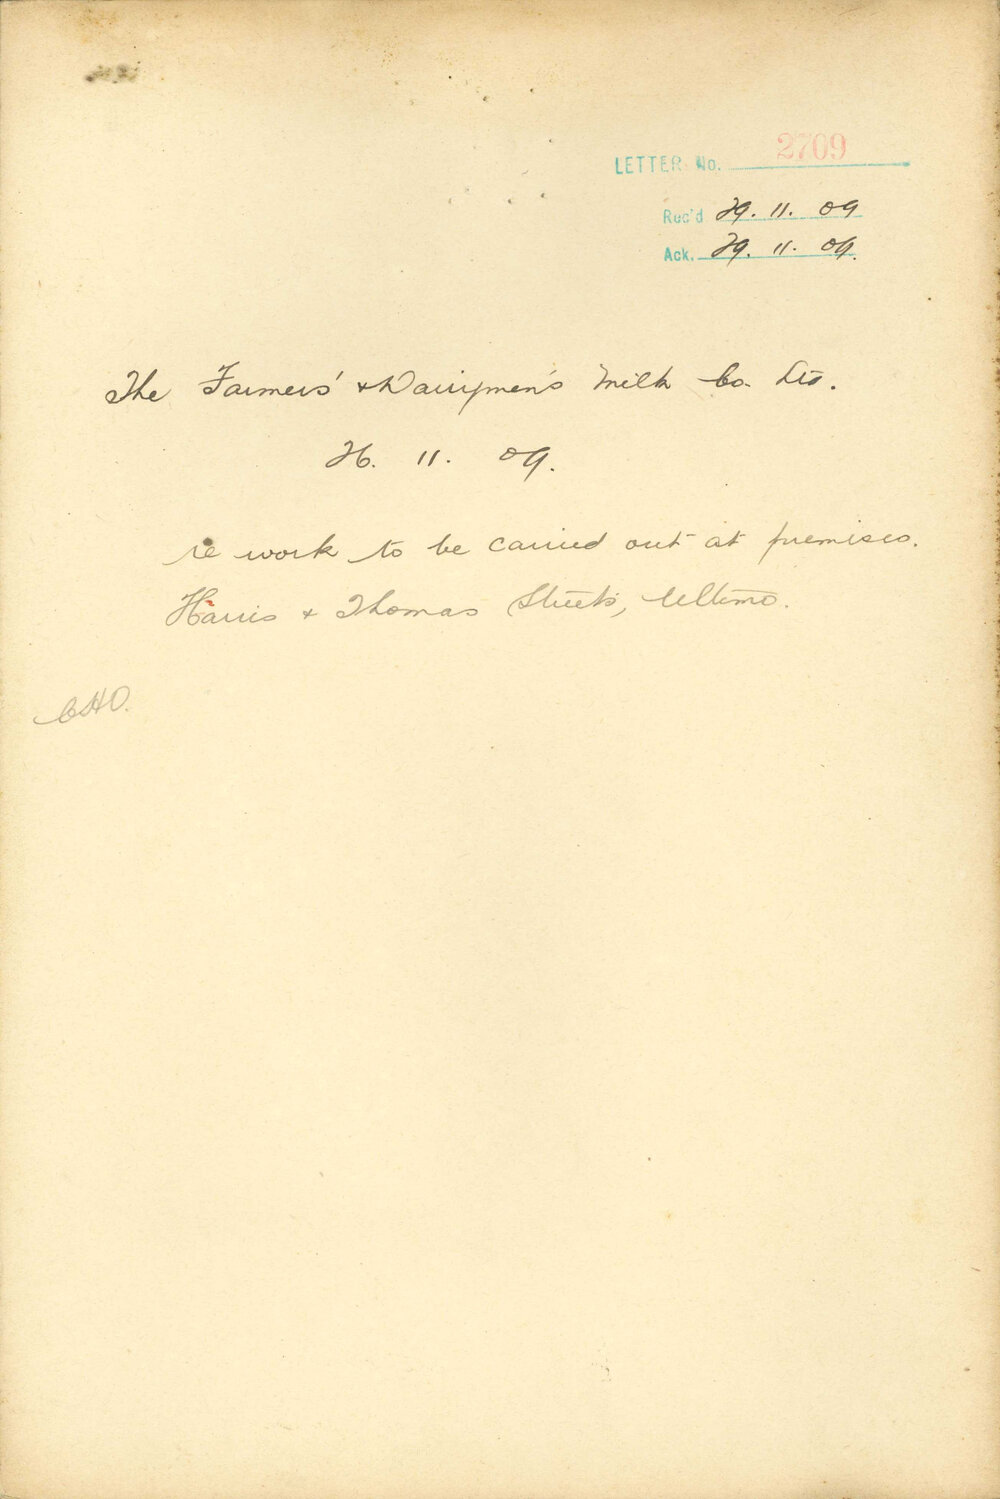 LETTER No. 2709
Rec'd 29. 11. 09
Ack. 29. 11. 09.
The Farmers' & Dairymen's Milk Co. Ltd.
26. 11. 09.
re work to be carried out at premises.
Harris & Thomas Streets, Ultimo.
CHO.